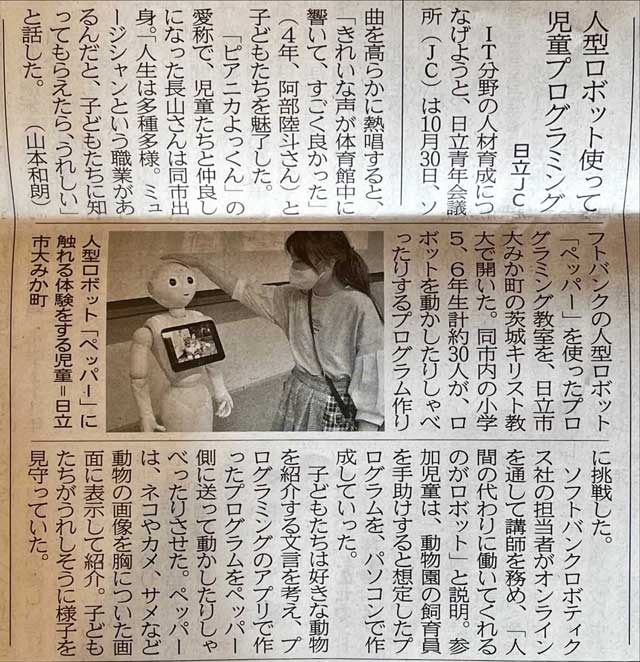 人型ロボット使って
児童プログラミング
日立JC
IT分野の人材育成につ
なげようと、日立青年会議
所(JC)は10月30日、ソ
フトバンクの人型ロボット
「ペッパー」を使ったプロ
グラミング教室を、日立市
大みか町の茨城キリスト教
大で開いた。同市内の小学
5、6年生計約30人が、ロ
ボットを動かしたりしゃべ
ったりするプログラム作り
に挑戦した。
ソフトバンクロボティク
ス社の担当者がオンライン
を通して講師を務め、「人
間の代わりに働いてくれる
のがロボット」と説明。参
加児童は、動物園の飼育員
を手助けすると想定したプ
ログラムを、パソコンで作
成していった。
子どもたちは好きな動物
を紹介する文言を考え、プ
ログラミングのアプリで作
ったプログラムをペッパー
側に送って動かしたりしゃ
べったりさせた。ペッパー
は、ネコやカメ、サメなど
動物の画像を胸についた画
面に表示して紹介。子ども
たちがうれしそうに様子を
見守っていた。
人型ロボット「ペッパー」に
触れる体験をする児童=日立
市大みか町
曲を高らかに熱唱すると、
「きれいな声が体育館中に
響いて、すごく良かった」
(4年、阿部陸斗さん)と
子どもたちを魅了した。
「ピアニカよっくん」の
愛称で、児童たちと仲良し
になった長山さんは同市出
身。「人生は多種多様。ミュ
ージシャンという職業があ
るんだと、子どもたちに知
ってもらえたら、うれしい」
と話した。 (山本和朗)